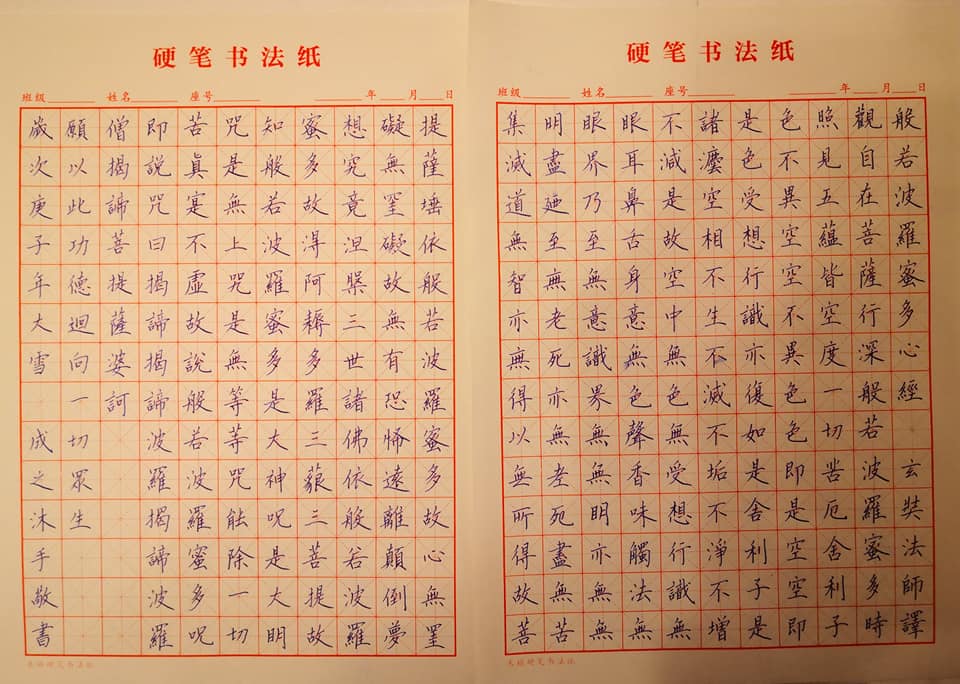 硬笔书法纸
班级 姓名 座号 年 月 日
般若波羅蜜多心經 玄奘法師譯
觀自在菩薩行深般若波羅蜜多時
照見五蘊皆空度一切苦厄舍利子
色不異空空不異色色即是空空即
是色受想行識亦復如是舍利子是
諸灋空相不生不滅不垢不淨不增
不減是故空中無色無受想行識無
眼耳鼻舌身意無色聲香味觸法無
眼界乃至無意識界無無明亦無無
明盡廼至無老死亦無老死盡無苦
集滅道無智亦無得以無所得故菩
硬笔书法纸
班级 姓名 座号 年 月 日
提薩埵依般若波羅蜜多故心無罣
礙無罣礙故無有恐怖遠離顛倒夢
想究竟涅槃三世諸佛依般若波羅
蜜多故得阿耨多羅三藐三菩提故
知般若波羅蜜多是大神呪是大明
咒是無上咒是無等等咒能除一切
苦真寔不虛故說般若波羅蜜多呪
即說咒曰揭諦揭諦波羅揭諦波羅
僧揭諦菩提薩婆訶
願以此功德迴向一切眾生
歲次庚子年大雪 成之沐手敬書